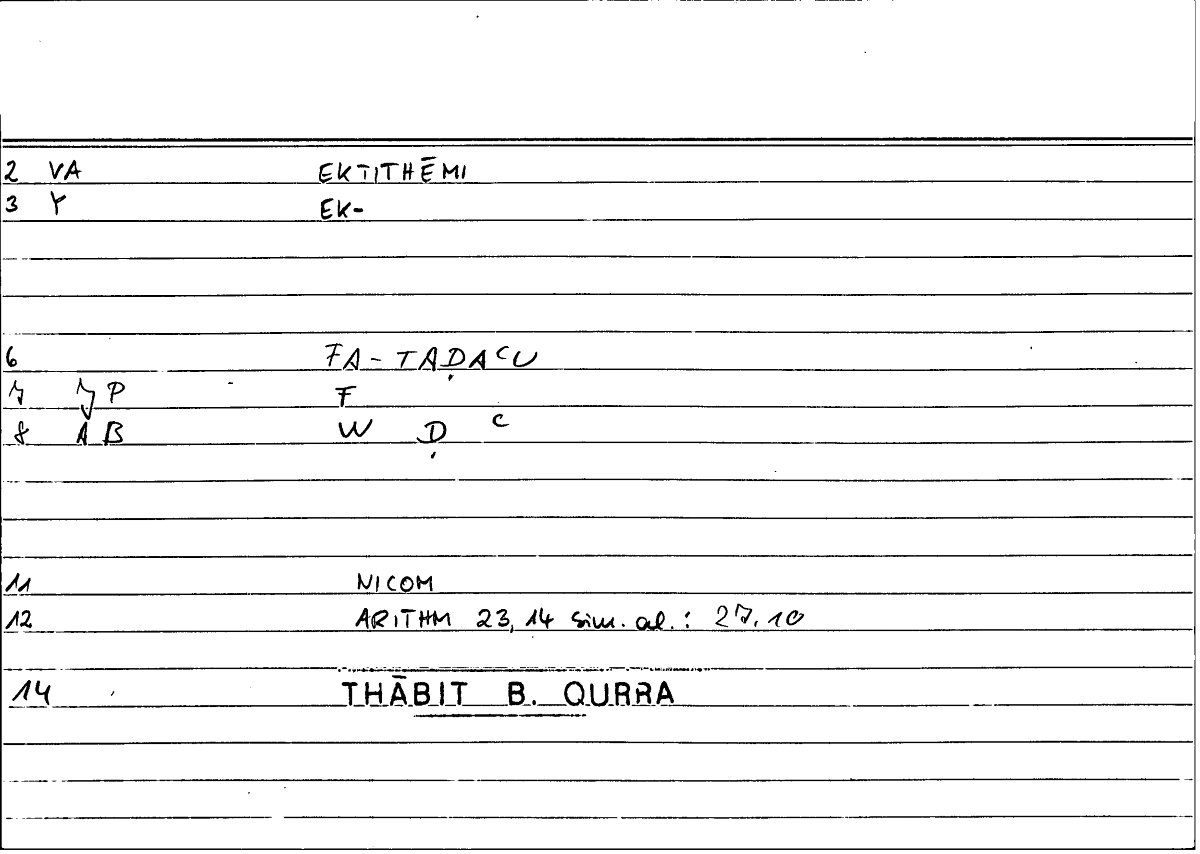 2 VA EKTITHĒMI
3 Y EK-
6 FA-TAḌAᶜU
7 P F
8 A B W Ḍ ᶜ
11 NICOM
12 ARITHM 23,14 sim. al.: 27.10
14 THĀBIT B. QURRA